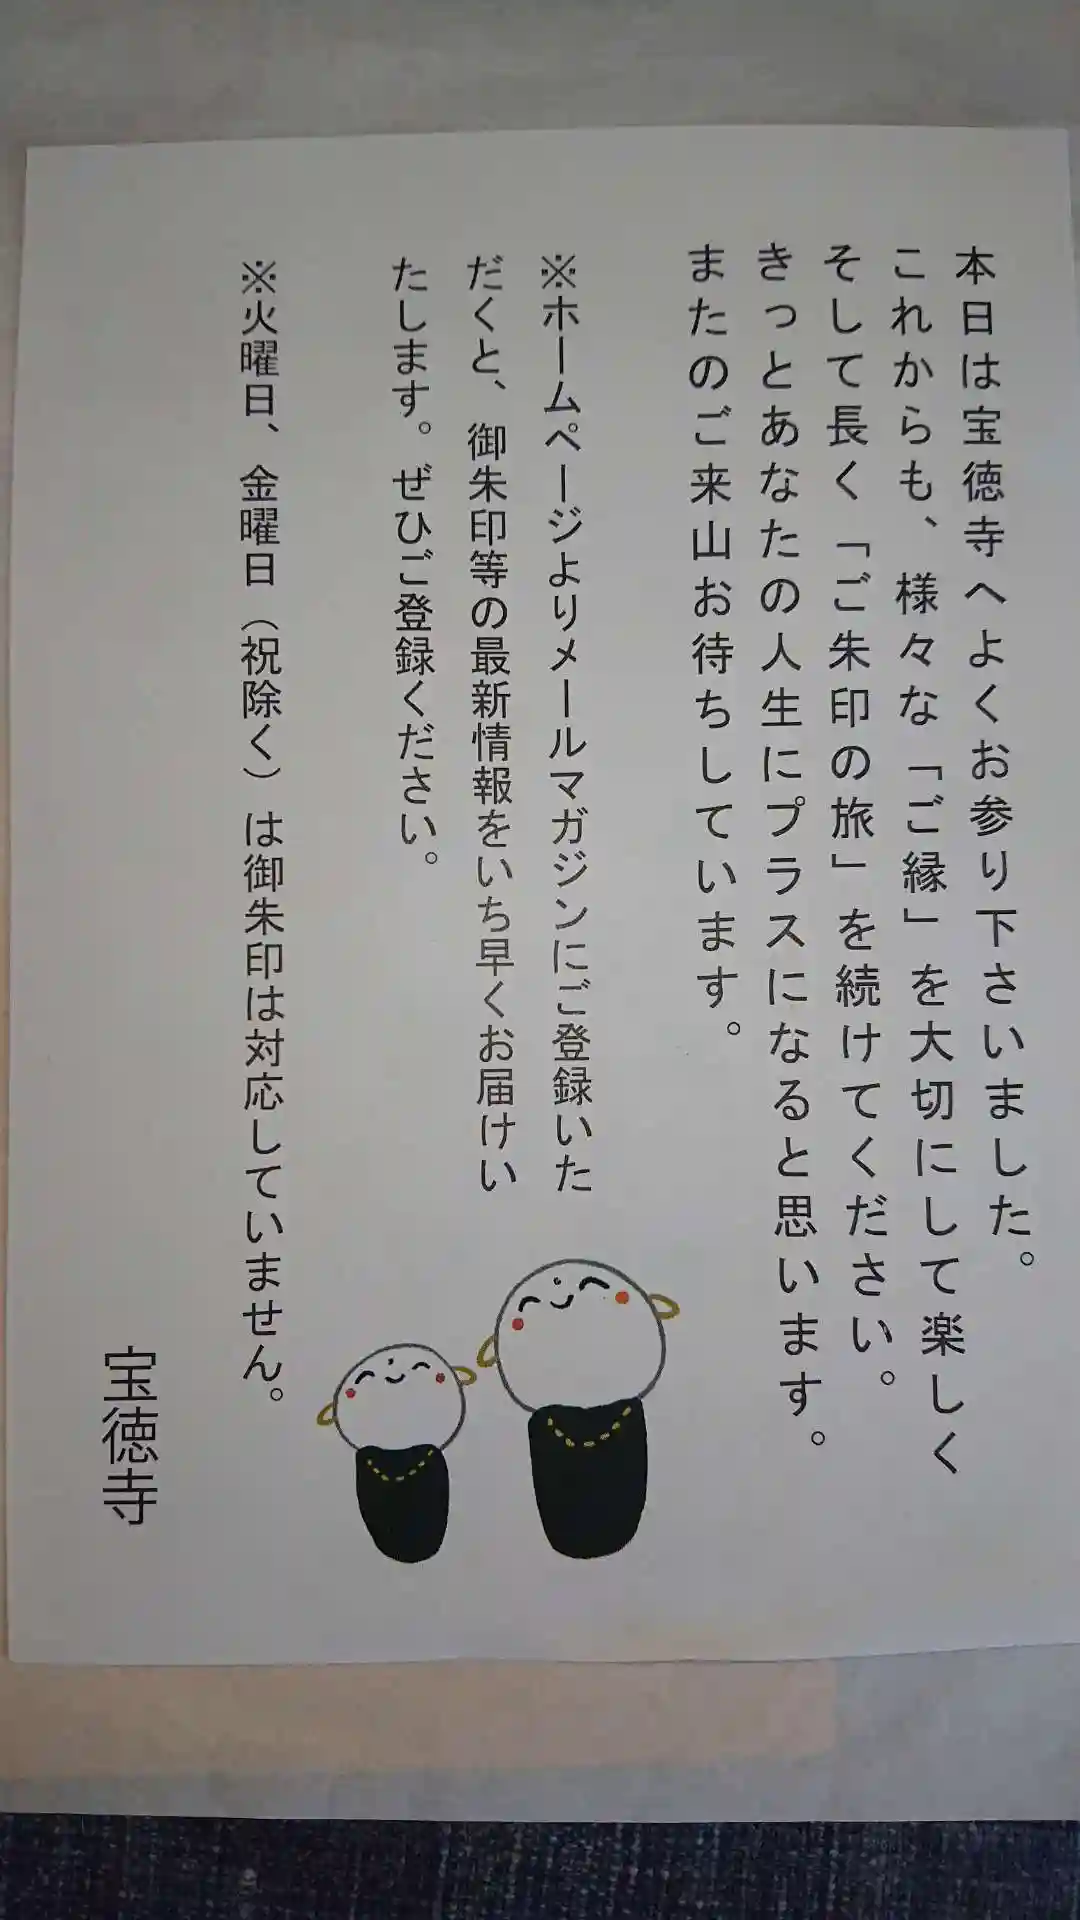 本日は宝徳寺へよくお参り下さいました。
これからも、様々な「ご縁」を大切にして楽しく
そして長く「ご朱印の旅」を続けてください。
きっとあなたの人生にプラスになると思います。
またのご来山お待ちしています。
※ホームページよりメールマガジンにご登録いた
だくと、御朱印等の最新情報をいち早くお届けい
たします。ぜひご登録ください。
※火曜日、金曜日（祝除く）は御朱印は対応していません。
宝徳寺